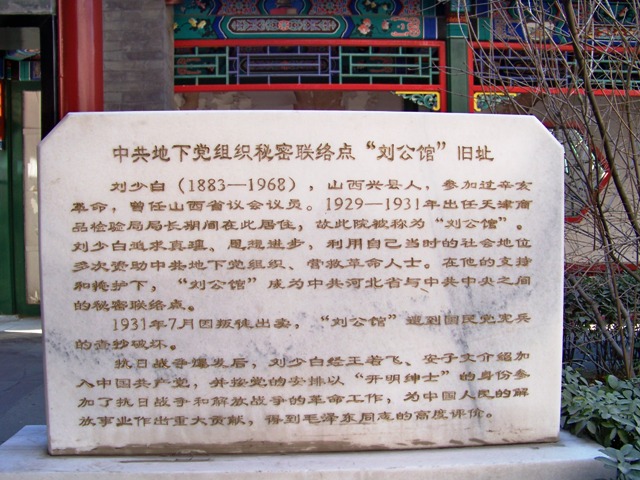 中共地下党组织秘密联络点“刘公馆”旧址
刘少白（1883—1968），山西兴县人，参加过辛亥
革命，曾任山西省议会议员。1929—1931年出任天津商
品检验局局长期间在此居住，故此院被称为“刘公馆”。
刘少白追求真理、思想进步，利用自己当时的社会地位
多次资助中共地下党组织、营救革命人士。在他的支持
和掩护下，“刘公馆”成为中共河北省与中共中央之间
的秘密联络点。
1931年7月因叛徒出卖，“刘公馆”遭到国民党宪兵
的查抄破坏。
抗日战争爆发后，刘少白经王若飞、安子文介绍加
入中国共产党，并按党的安排以“开明绅士”的身份参
加了抗日战争和解放战争的革命工作，为中国人民的解
放事业作出重大贡献，得到毛泽东同志的高度评价。